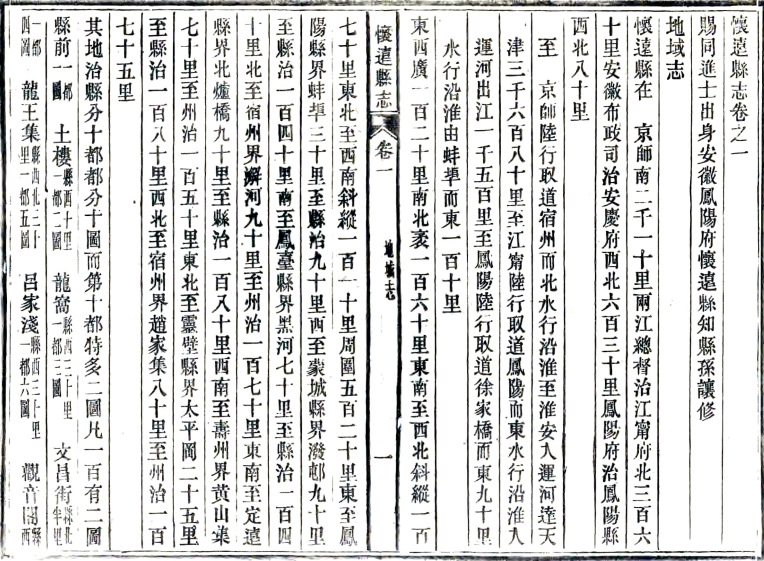 懷遠縣志卷之一
賜同進士出身安徽鳳陽府懷遠縣知縣孫讓修
地域志
懷遠縣在　京師南二千一十里兩江總督治江甯府北三百六
十里安徽布政司治安慶府西北六百三十里鳳陽府治鳳陽縣
西北八十里
至　京師陸行取道宿州而北水行沿淮至淮安入運河達天
津三千六百八十里至江甯陸行取道鳳陽而東水行沿淮入
運河出江一千五百里至鳳陽陸行取道徐家橋而東九十里
水行沿淮由蚌埠而東一百十里
東西廣一百二十里南北袤一百六十里東南至西北斜縱一百
懷遠縣志　卷一　地域志　一
七十里東北至西南斜縱一百一十里周圍五百二十里東至鳳
陽縣界蚌埠三十里至縣治九十里西至蒙城縣界潑邨九十里
至縣治一百四十里南至鳳臺縣界黑河七十里至縣治一百四
十里北至宿州界澥河九十里至州治一百七十里東南至定遠
縣界北爐橋九十里至縣治一百八十里西南至壽州界黄山集
七十里至州治一百五十里東北至靈壁縣界太平岡二十五里
至縣治一百八十里西北至宿州界趙家集八十里至州治一百
七十五里
其地治縣分十都都分十圖而第十都特多二圖凡一百有二圖
縣前一都一圖　土樓縣西十里一都二圖　龍窩縣西三十里一都三圖　文昌街縣北半里
一都四圖　龍王集縣西北三十里一都五圖　呂家淺縣西三十里一都六圖　觀音